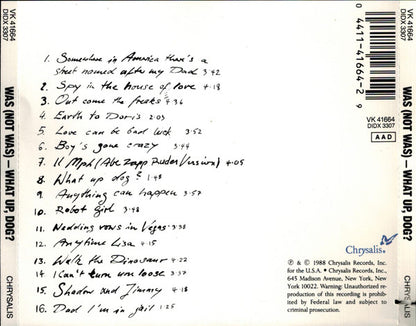 VK 41664
DIDX 3307
WAS (NOT WAS) — WHAT UP, DOG?
CHRYSALIS
1. Somewhere in America there's a
street named after my Dad 3:42
2. Spy in the house of love 4:18
3. Out come the freaks 4:36
4. Earth to Doris 2:03
5. Love can be bad luck 3:52
6. Boy's gone crazy 3:44
7. 11 Mph (Abe Zapp Ruder Version) 4:05
8. What up dog? 1:48
9. Anything can happen 3:57
10. Robot Girl 3:48
11. Wedding vows in Vegas 3:38
12. Anytime Lisa 4:15
13. Walk the Dinosaur 4:22
14. I Can't turn you loose 3:37
15. Shadow and Jimmy 4:18
16. Dad I'm in jail 1:25
0 4411-41664-2 9
VK 41664
DIDX 3307
AAD
Chrysalis
℗ & © 1988 Chrysalis Records, Inc.
for the U.S.A. • Chrysalis Records, Inc.,
645 Madison Avenue, New York, New
York 10022. Warning: Unauthorized re-
production of this recording is prohibited
by Federal law and subject to criminal
prosecution.
VK 41664
DIDX 3307
WAS (NOT WAS) — WHAT UP, DOG?
CHRYSALIS